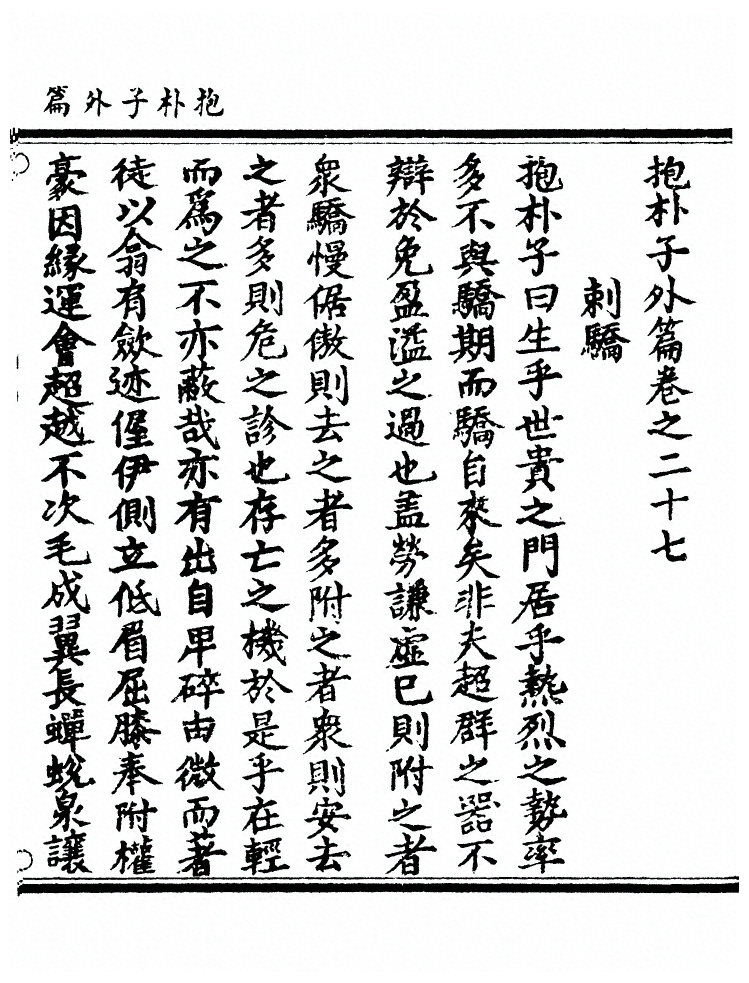 抱朴子外篇
抱朴子外篇卷之二十七
刺驕
抱朴子曰生乎世貴之門居乎熱烈之勢率
多不與驕期而驕自來矣非夫超群之器不
辯於免盈溢之過也盖勞謙虛已則附之者
衆驕慢倨傲則去之者多附之者衆則安去
之者多則危之診也存亡之機於是乎在輕
而爲之不亦蔽哉亦有出自卑碎由微而著
徒以翕有歛迹偓伊側立低眉屈膝奉附權
豪因緣運會超越不次毛成翼長蟬蛻泉讓